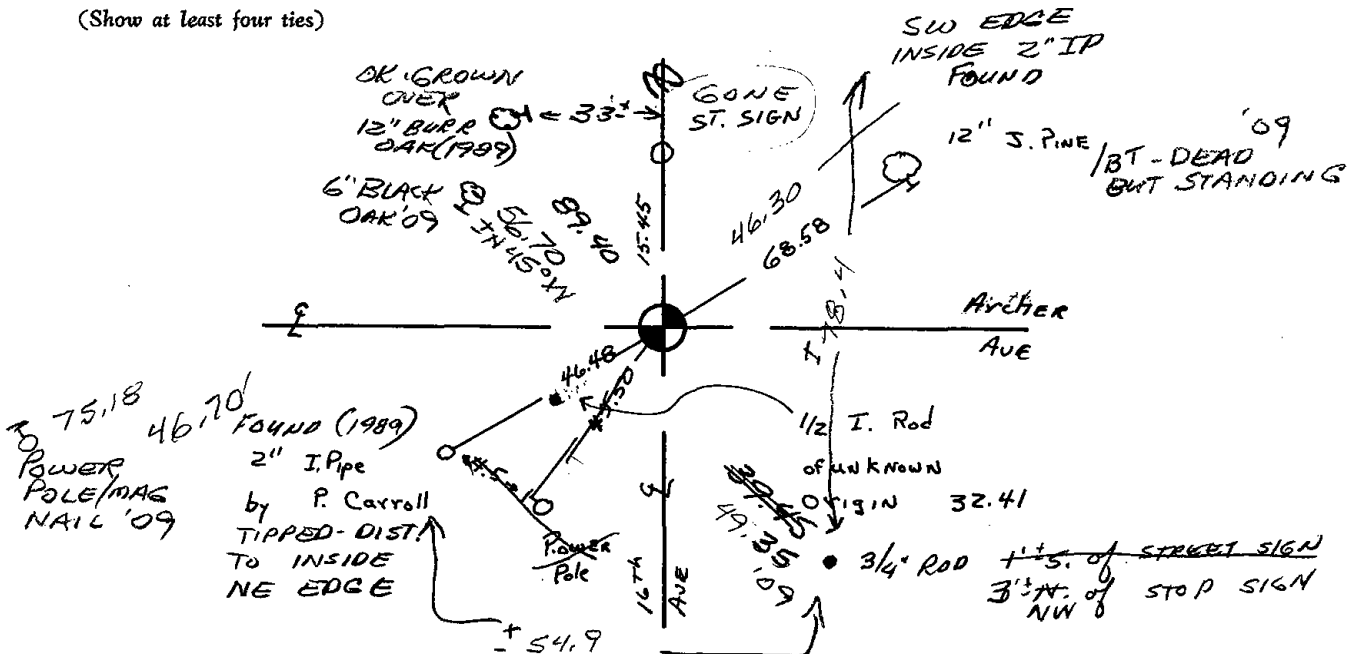 (Show at least four ties)
SW EDGE
INSIDE 2" IP
FOUND
OK. GROWN
OVER
12" BURR
OAK (1989)
33'±
GONE
ST. SIGN
12" J. PINE
/BT - DEAD '09
BUT STANDING
6" BLACK
OAK '09
56.70
IN 45°
89.40
15.45
46.30
68.58
± 78.4
℄
Archer
AVE
46.48
75.18
46.70'
POWER
POLE/MAG
NAIL '09
FOUND (1989)
2" I.Pipe
by P. Carroll
TIPPED - DIST.
TO INSIDE
NE EDGE
Power
Pole
℄
16TH
AVE
1/2 I. Rod
of unknown
origin 32.41
39.45
49.35
'09
3/4" ROD 1'± S. of STREET SIGN
3'± N. of STOP SIGN
NW
± 54.9